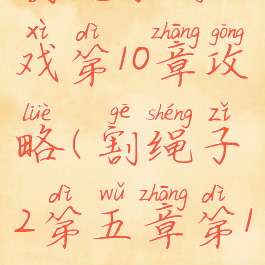 xì dì zhāng gōng
戏第10章攻
lüè gē shéng zǐ
略(割绳子
dì wǔ zhāng dì
2第五章第1